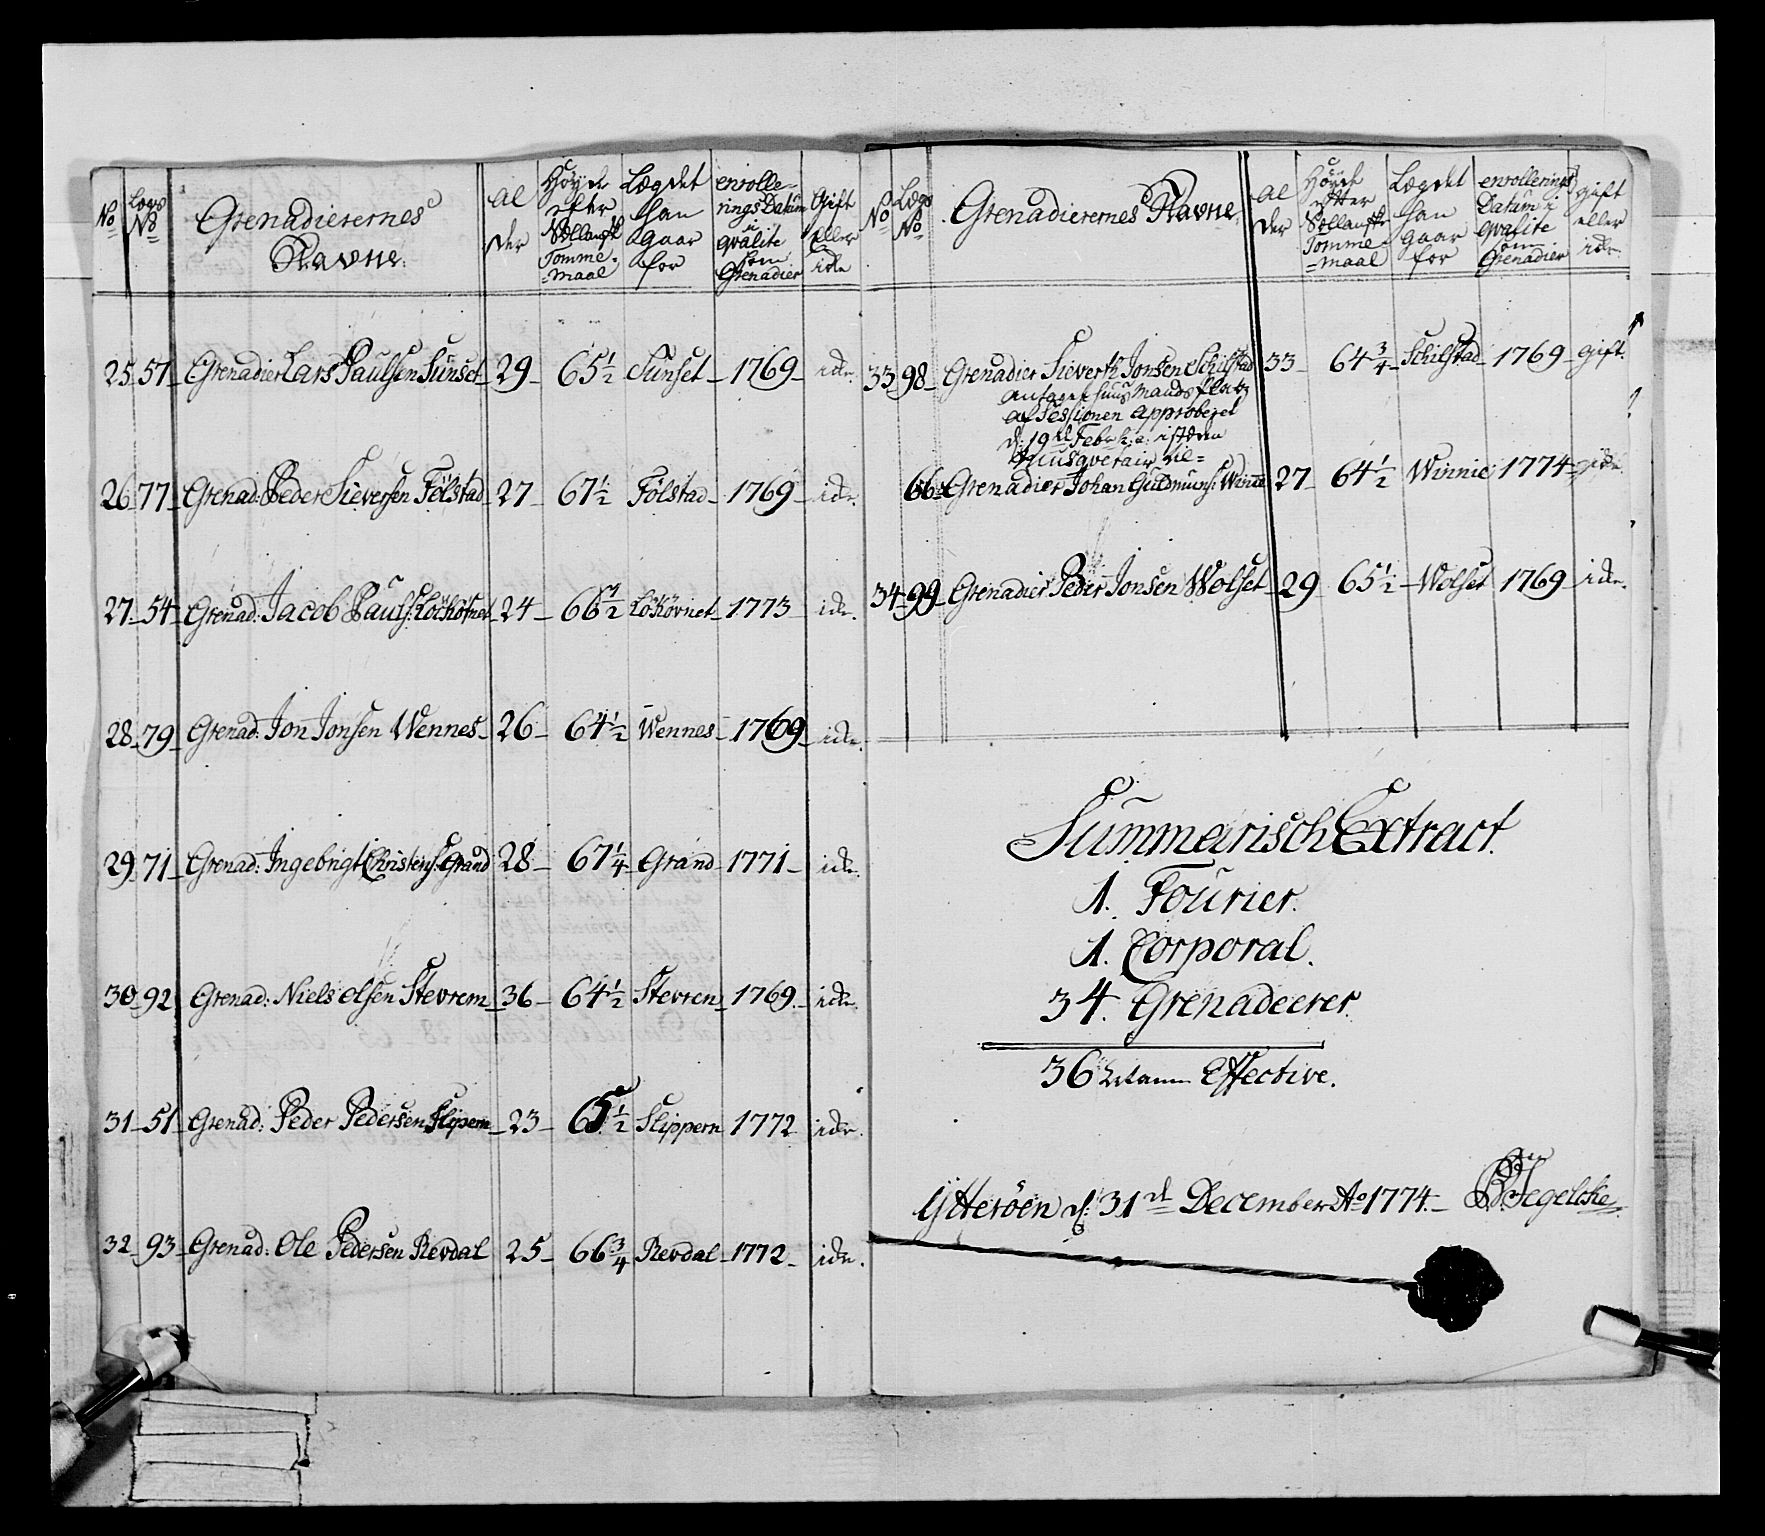 No
Lægs No
Grenadierernes Navne.
Alder
Höyde efter Sollanske Tommemaal
Lægdet han gaar for
enrolleringsDatum i qvalite som Grenadier
Gift eller icke
25 57 Grenadier Lars Paulsen Sunset 29 65 1/2 Sunset 1769 icke.
26 77 Grenad: Peder Sieversen Fölstad 27 67 1/2 Fölstad 1769 icke.
27 54 Grenad: Jacob Pauls: Lökövnet 24 66 1/2 Lökövnet 1773 icke.
28 79 Grenad: Jon Jonsen Wennes 26 64 1/2 Wennes 1769 icke.
29 71 Grenad: Ingebrigt Christens: Grand 28 67 1/4 Grand 1771 icke.
30 92 Grenad: Niels Olsen Stevrem 36 64 1/2 Stevren 1769 icke.
31 51 Grenad: Peder Pedersen Slipern 23 65 1/2 Slippern 1772 icke.
32 93 Grenad: Ole Pedersen Revdal 25 66 3/4 Revdal 1772 icke.
No
Lægs No
Grenadierernes Navne.
Alder
Höyde efter Sollanske Tommemaal
Lægdet han gaar for
enrollerings Datum i qvalite som Grenadier
gift eller icke.
33 98 Grenadier Sievert Jonsen Schilstad 33 64 3/4 Schilstad 1769 gift.
Mands Platz
af Sessionen approberet
d: 19de Febr: h: a: isteden
Musqvetair
66 Grenadier Johan Guldmuns: Winne 27 64 1/2 Winnie 1774 icke.
34 99 Grenadier Peder Jonsen Wolset 29 65 1/2 Wolset 1769 icke.
Summarisch Extract.
1. Fourier.
1. Corporal.
34. Grenadeerer.
36 Effective.
Ytteröen d: 31de December Ao 1774. Tegelcke